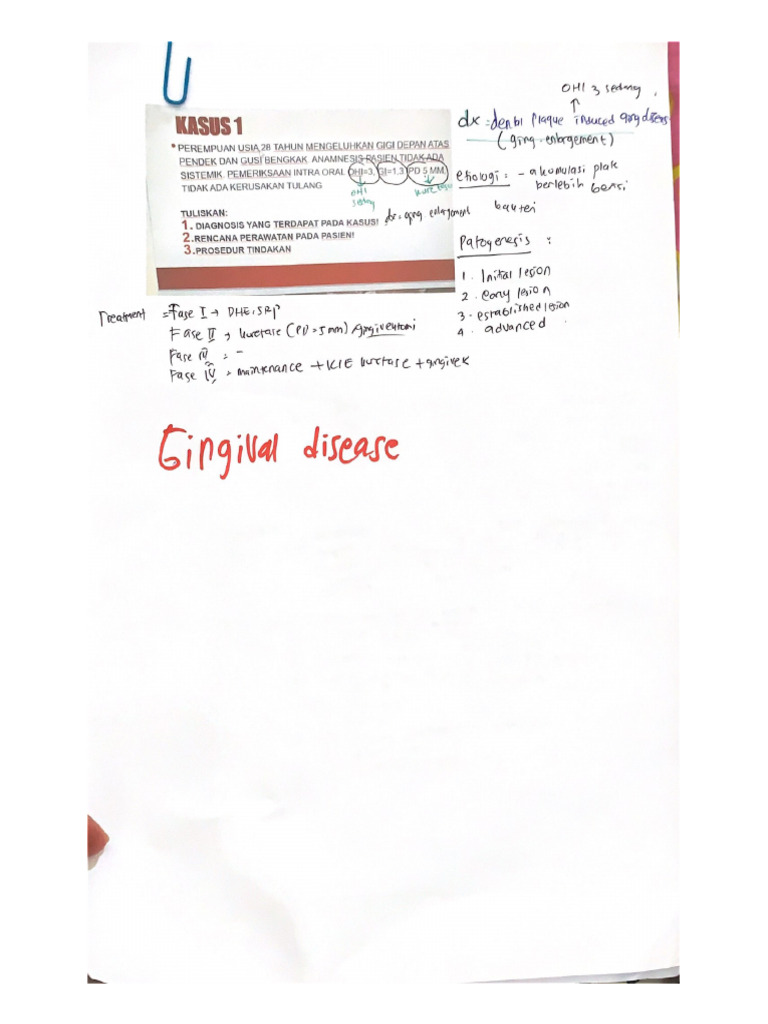 KASUS 1
• PEREMPUAN USIA 28 TAHUN MENGELUHKAN GIGI DEPAN ATAS
PENDEK DAN GUSI BENGKAK. ANAMNESIS PASIEN TIDAK ADA
SISTEMIK. PEMERIKSAAN INTRA ORAL OHI=3, GI=1,3 PD 5 MM.
TIDAK ADA KERUSAKAN TULANG
OHI
sedang
TULISKAN:
1. DIAGNOSIS YANG TERDAPAT PADA KASUS!
2. RENCANA PERAWATAN PADA PASIEN!
3. PROSEDUR TINDAKAN
dx: ging enlargement
OHI 3 sedang
dx = dental plaque induced ging disease
(ging. enlargement)
etiologi: - akumulasi plak
berlebih
bakteri
Patogenesis :
1. Initial lesion
2. early lesion
3. established lesion
4. advanced
Treatment = Fase I → DHE, SRP
Fase II → kuretase (PD = 5mm)
Fase IV = -
Fase IV = maintenance + KIE kuretase + gingivek
Gingival disease